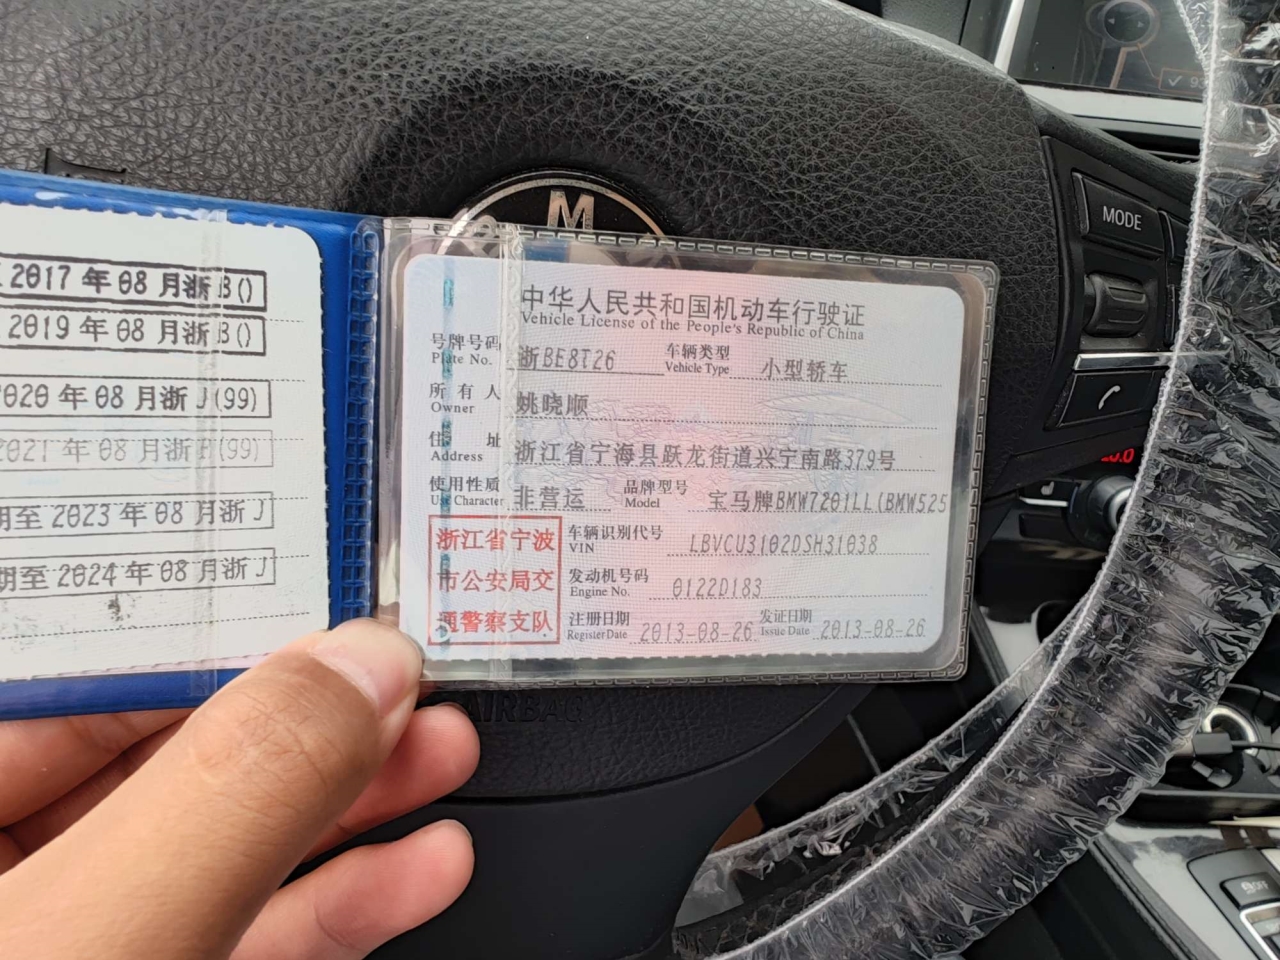 2017年08月浙B()
2019年08月浙B()
2020年08月浙J(99)
2021年08月浙F(99)
期至2023年08月浙J
期至2024年08月浙J
中华人民共和国机动车行驶证
Vehicle License of the People's Republic of China
号牌号码 浙BE8T26 车辆类型 小型轿车
Plate No. Vehicle Type
所有人 姚晓顺
Owner
住址 浙江省宁海县跃龙街道兴宁南路379号
Address
使用性质 非营运 品牌型号 宝马牌BMW7201LL(BMW525
Use Character Model
浙江省宁波
市公安局交
通警察支队
车辆识别代号 LBVCU3102DSH31038
VIN
发动机号码 0122D183
Engine No.
注册日期 2013-08-26 发证日期 2013-08-26
Register Date Issue Date
M
MODE
AIRBAG
OFF